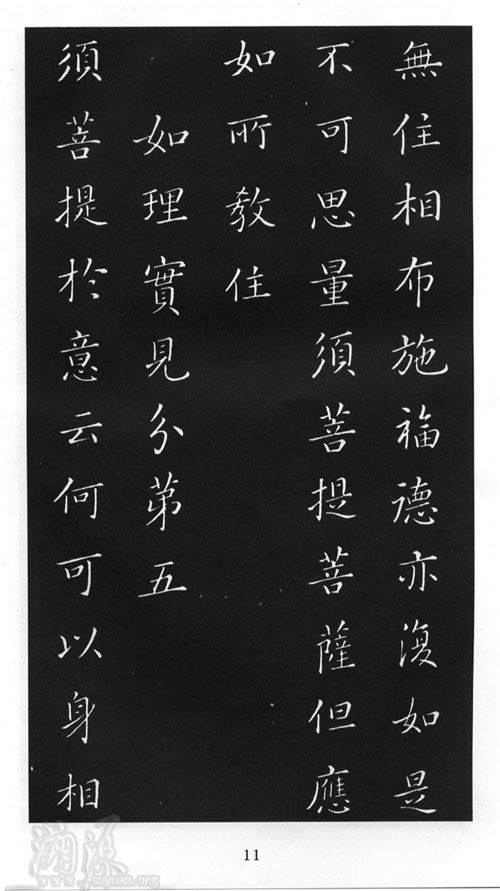 無住相布施福德亦復如是
不可思量須菩提菩薩但應
如所教住
如理實見分第五
須菩提於意云何可以身相
11
溯源
www.suyuan.org